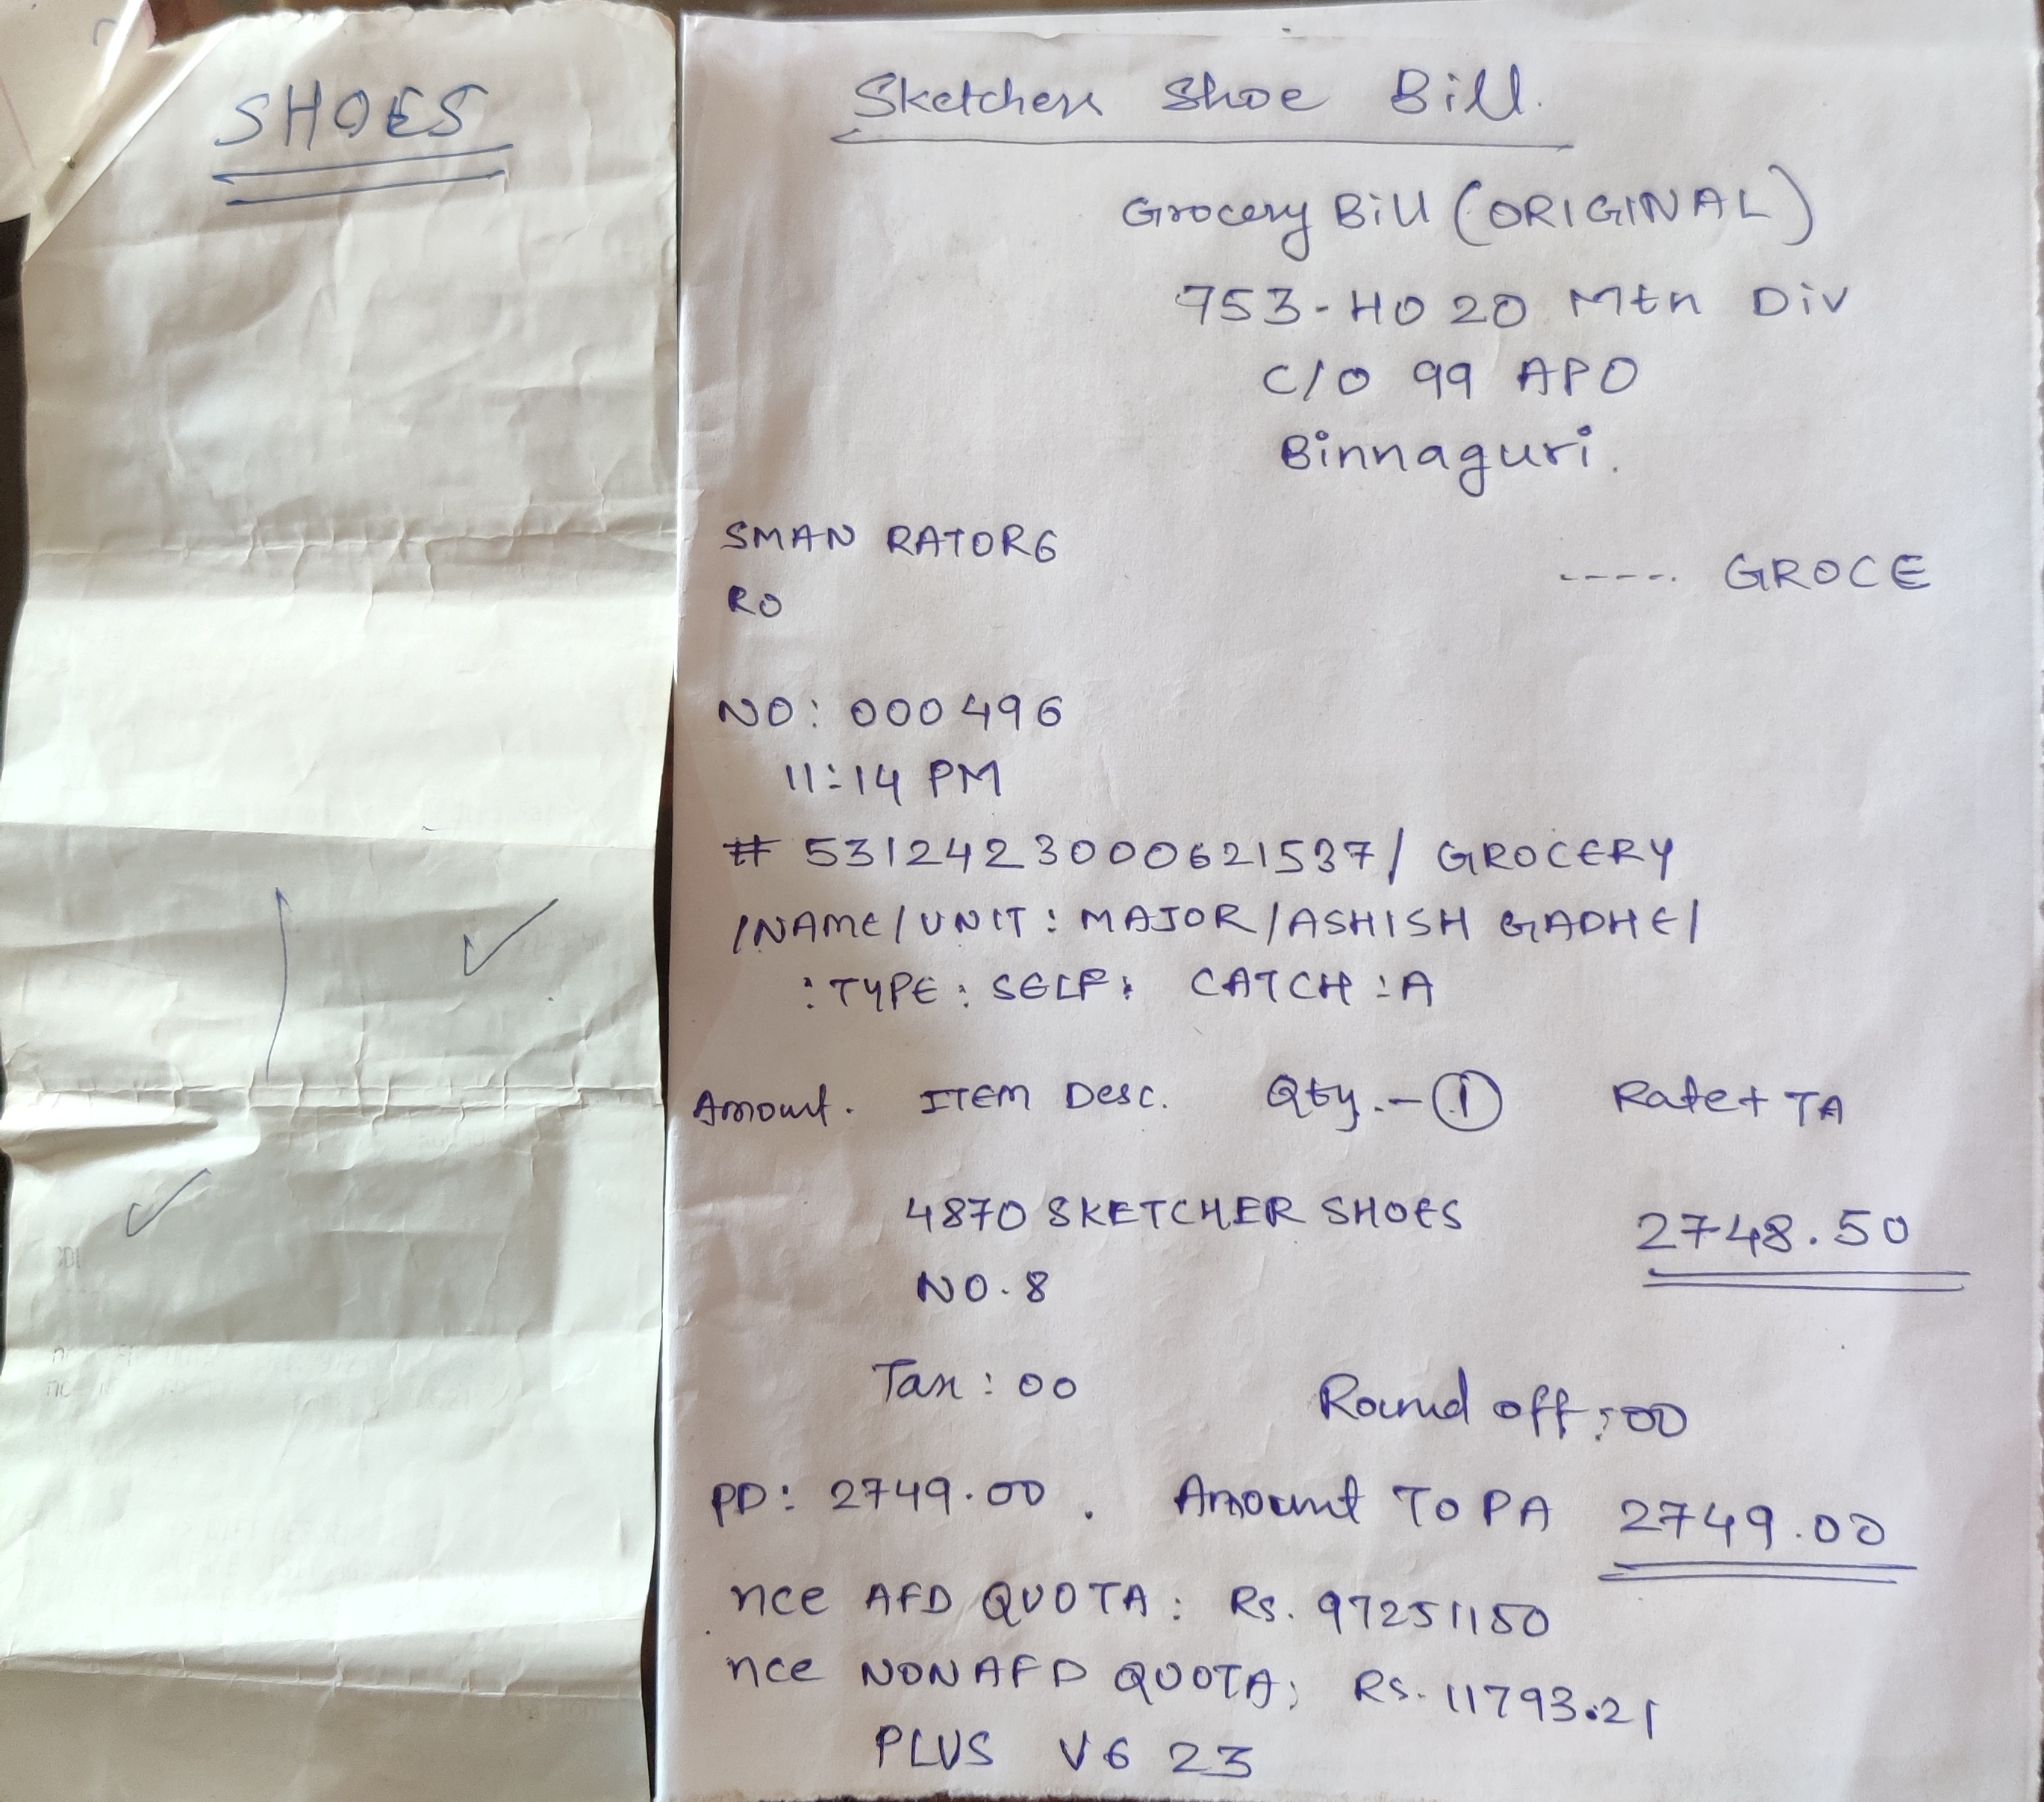 SHOES
Sketchers Shoe Bill.
Grocery Bill (ORIGINAL)
753-HO 20 Mtn Div
C/O 99 APO
Binnaguri.
SMAN RATOR6
----- GROCE
RO
NO: 000496
11:14 PM
# 5312423000621537/ GROCERY
/NAME/UNIT: MAJOR/ASHISH GADHE/
: TYPE: SELF: CATCH:A
Amount. ITEM Desc. Qty.-① Rate+ TA
4870 SKETCHER SHOES 2748.50
NO.8
Tax: 00 Round off:00
PD: 2749.00. Amount TO PA 2749.00
nce AFD QUOTA: Rs. 97251150
nce NONAFD QUOTA: RS. 11793.21
PLUS V6 23